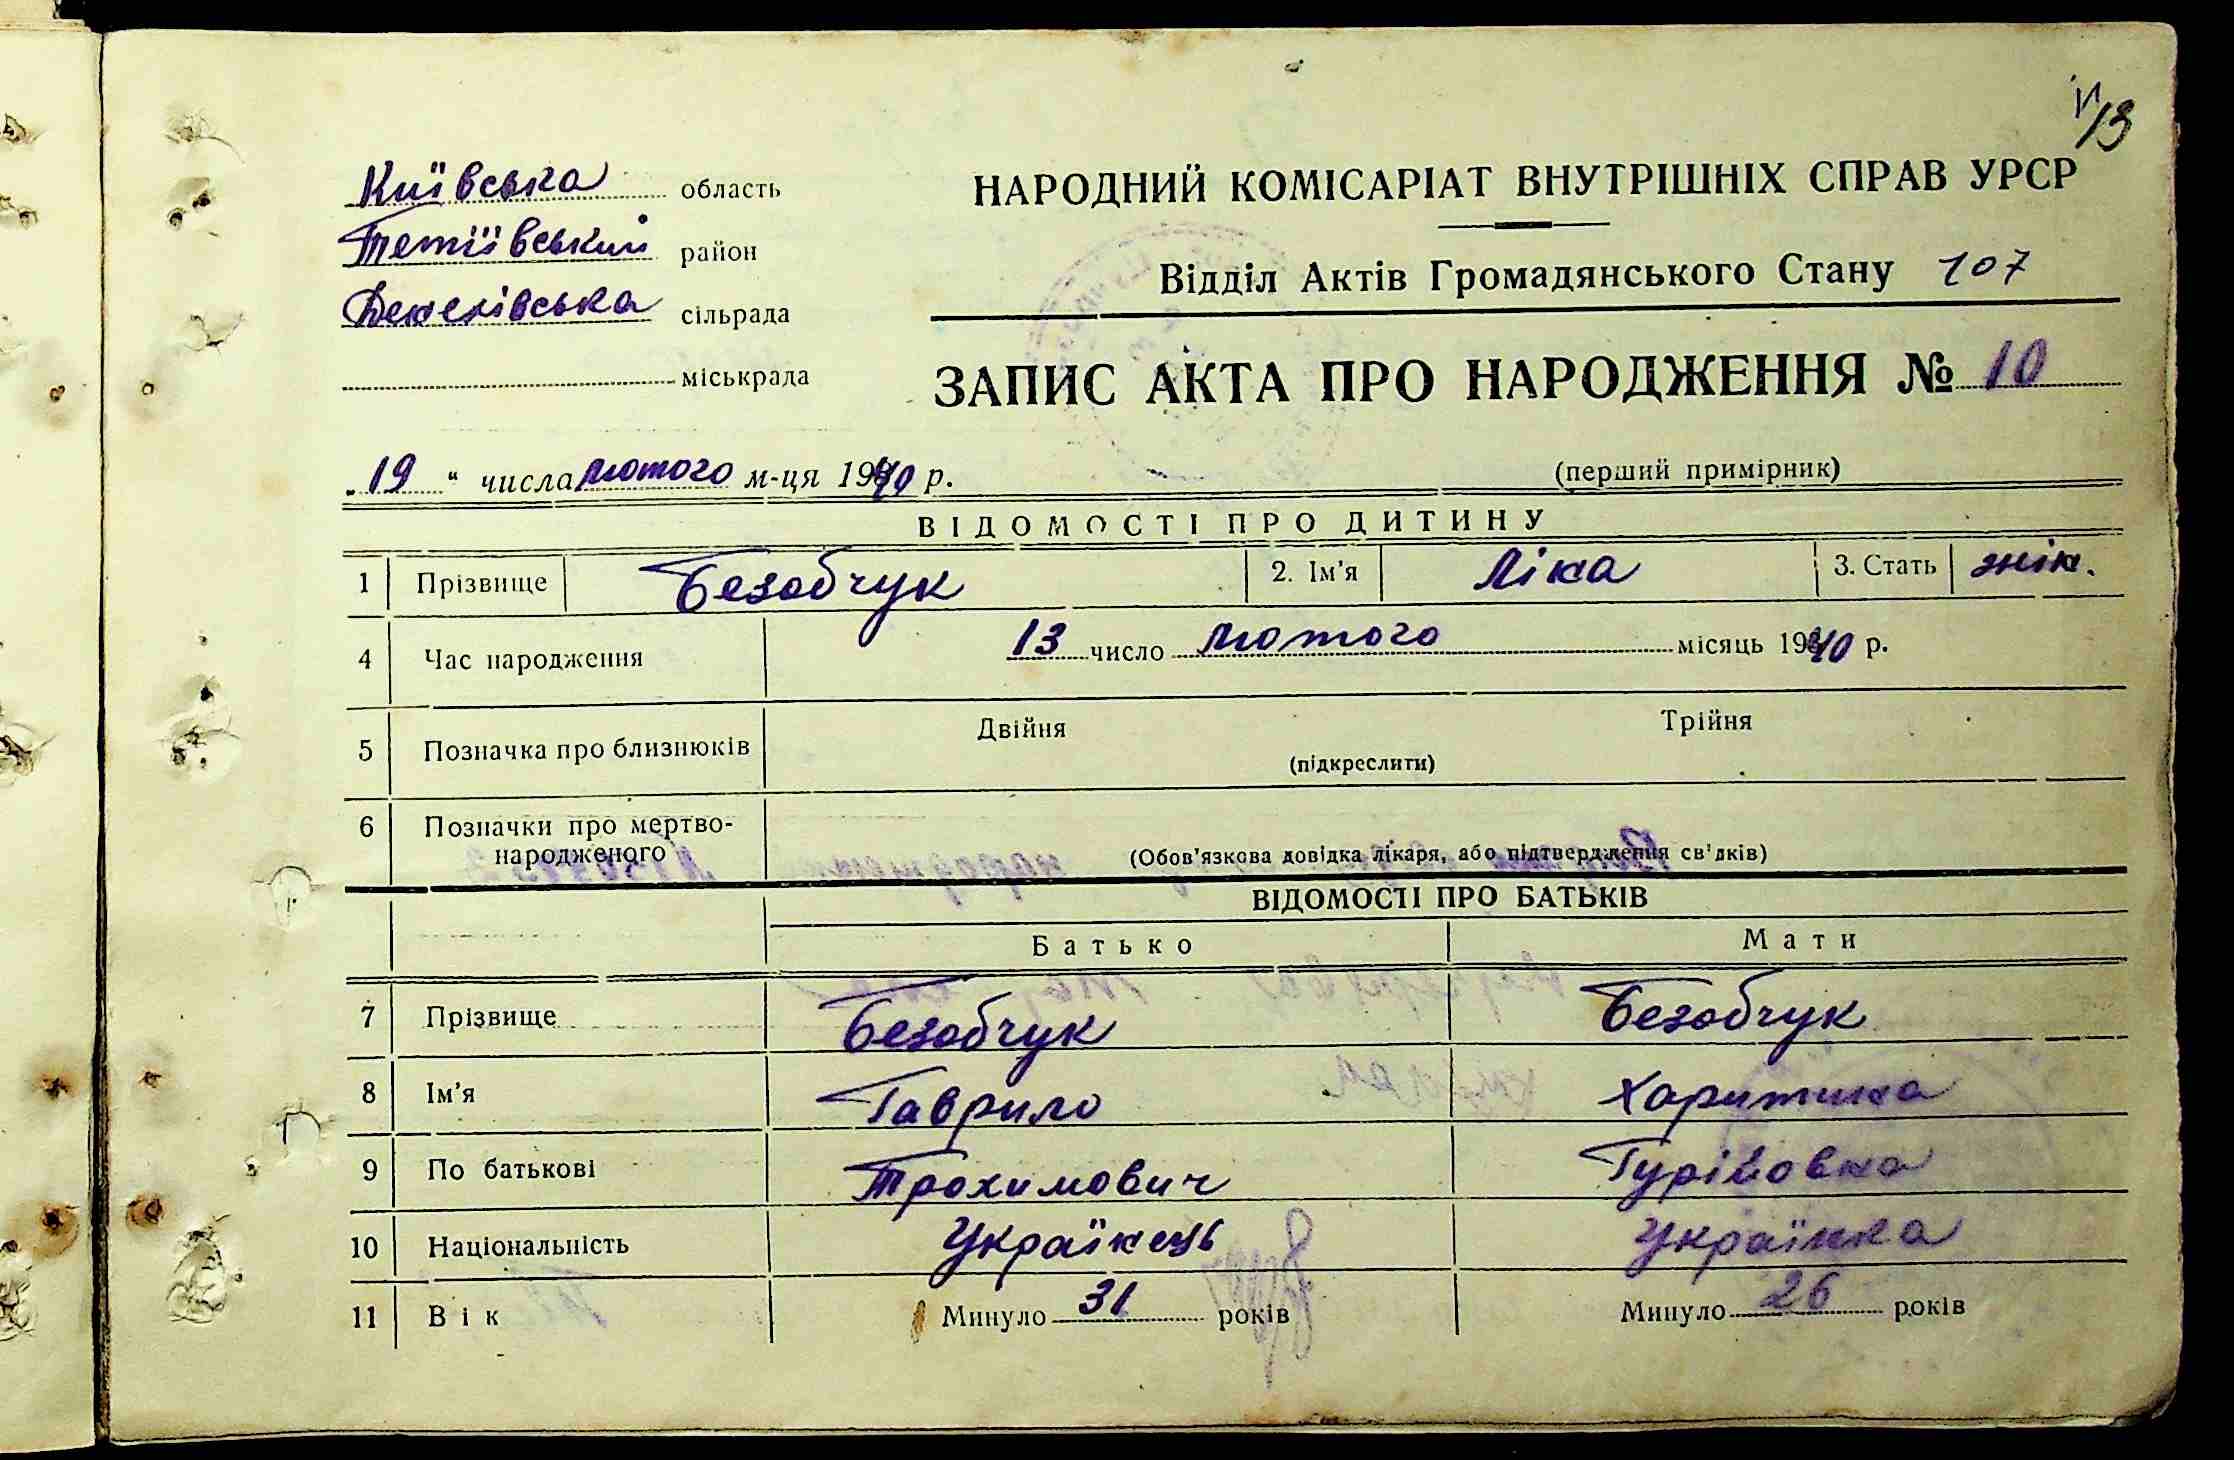 13
Київська область
Тетіївський район
Денелівська сільрада
міськрада
НАРОДНИЙ КОМІСАРІАТ ВНУТРІШНІХ СПРАВ УРСР
Відділ Актів Громадянського Стану 107
ЗАПИС АКТА ПРО НАРОДЖЕННЯ № 10
„19“ числа лютого м-ця 1940 р.
(перший примірник)
ВІДОМОСТІ ПРО ДИТИНУ
1 Прізвище Безобчук 2. Ім'я Ліка 3. Стать жін.
4 Час народження 13 число лютого місяць 1940 р.
5 Позначка про близнюків Двійня Трійня
(підкреслити)
6 Позначки про мертво-
народженого (Обов'язкова довідка лікаря, або підтвердження св'дків)
ВІДОМОСТІ ПРО БАТЬКІВ
Батько Мати
7 Прізвище Безобчук Безобчук
8 Ім'я Гаврило Харитина
9 По батькові Трохимович Гурійовна
10 Національність Українець Українка
11 Вік Минуло 31 років Минуло 26 років